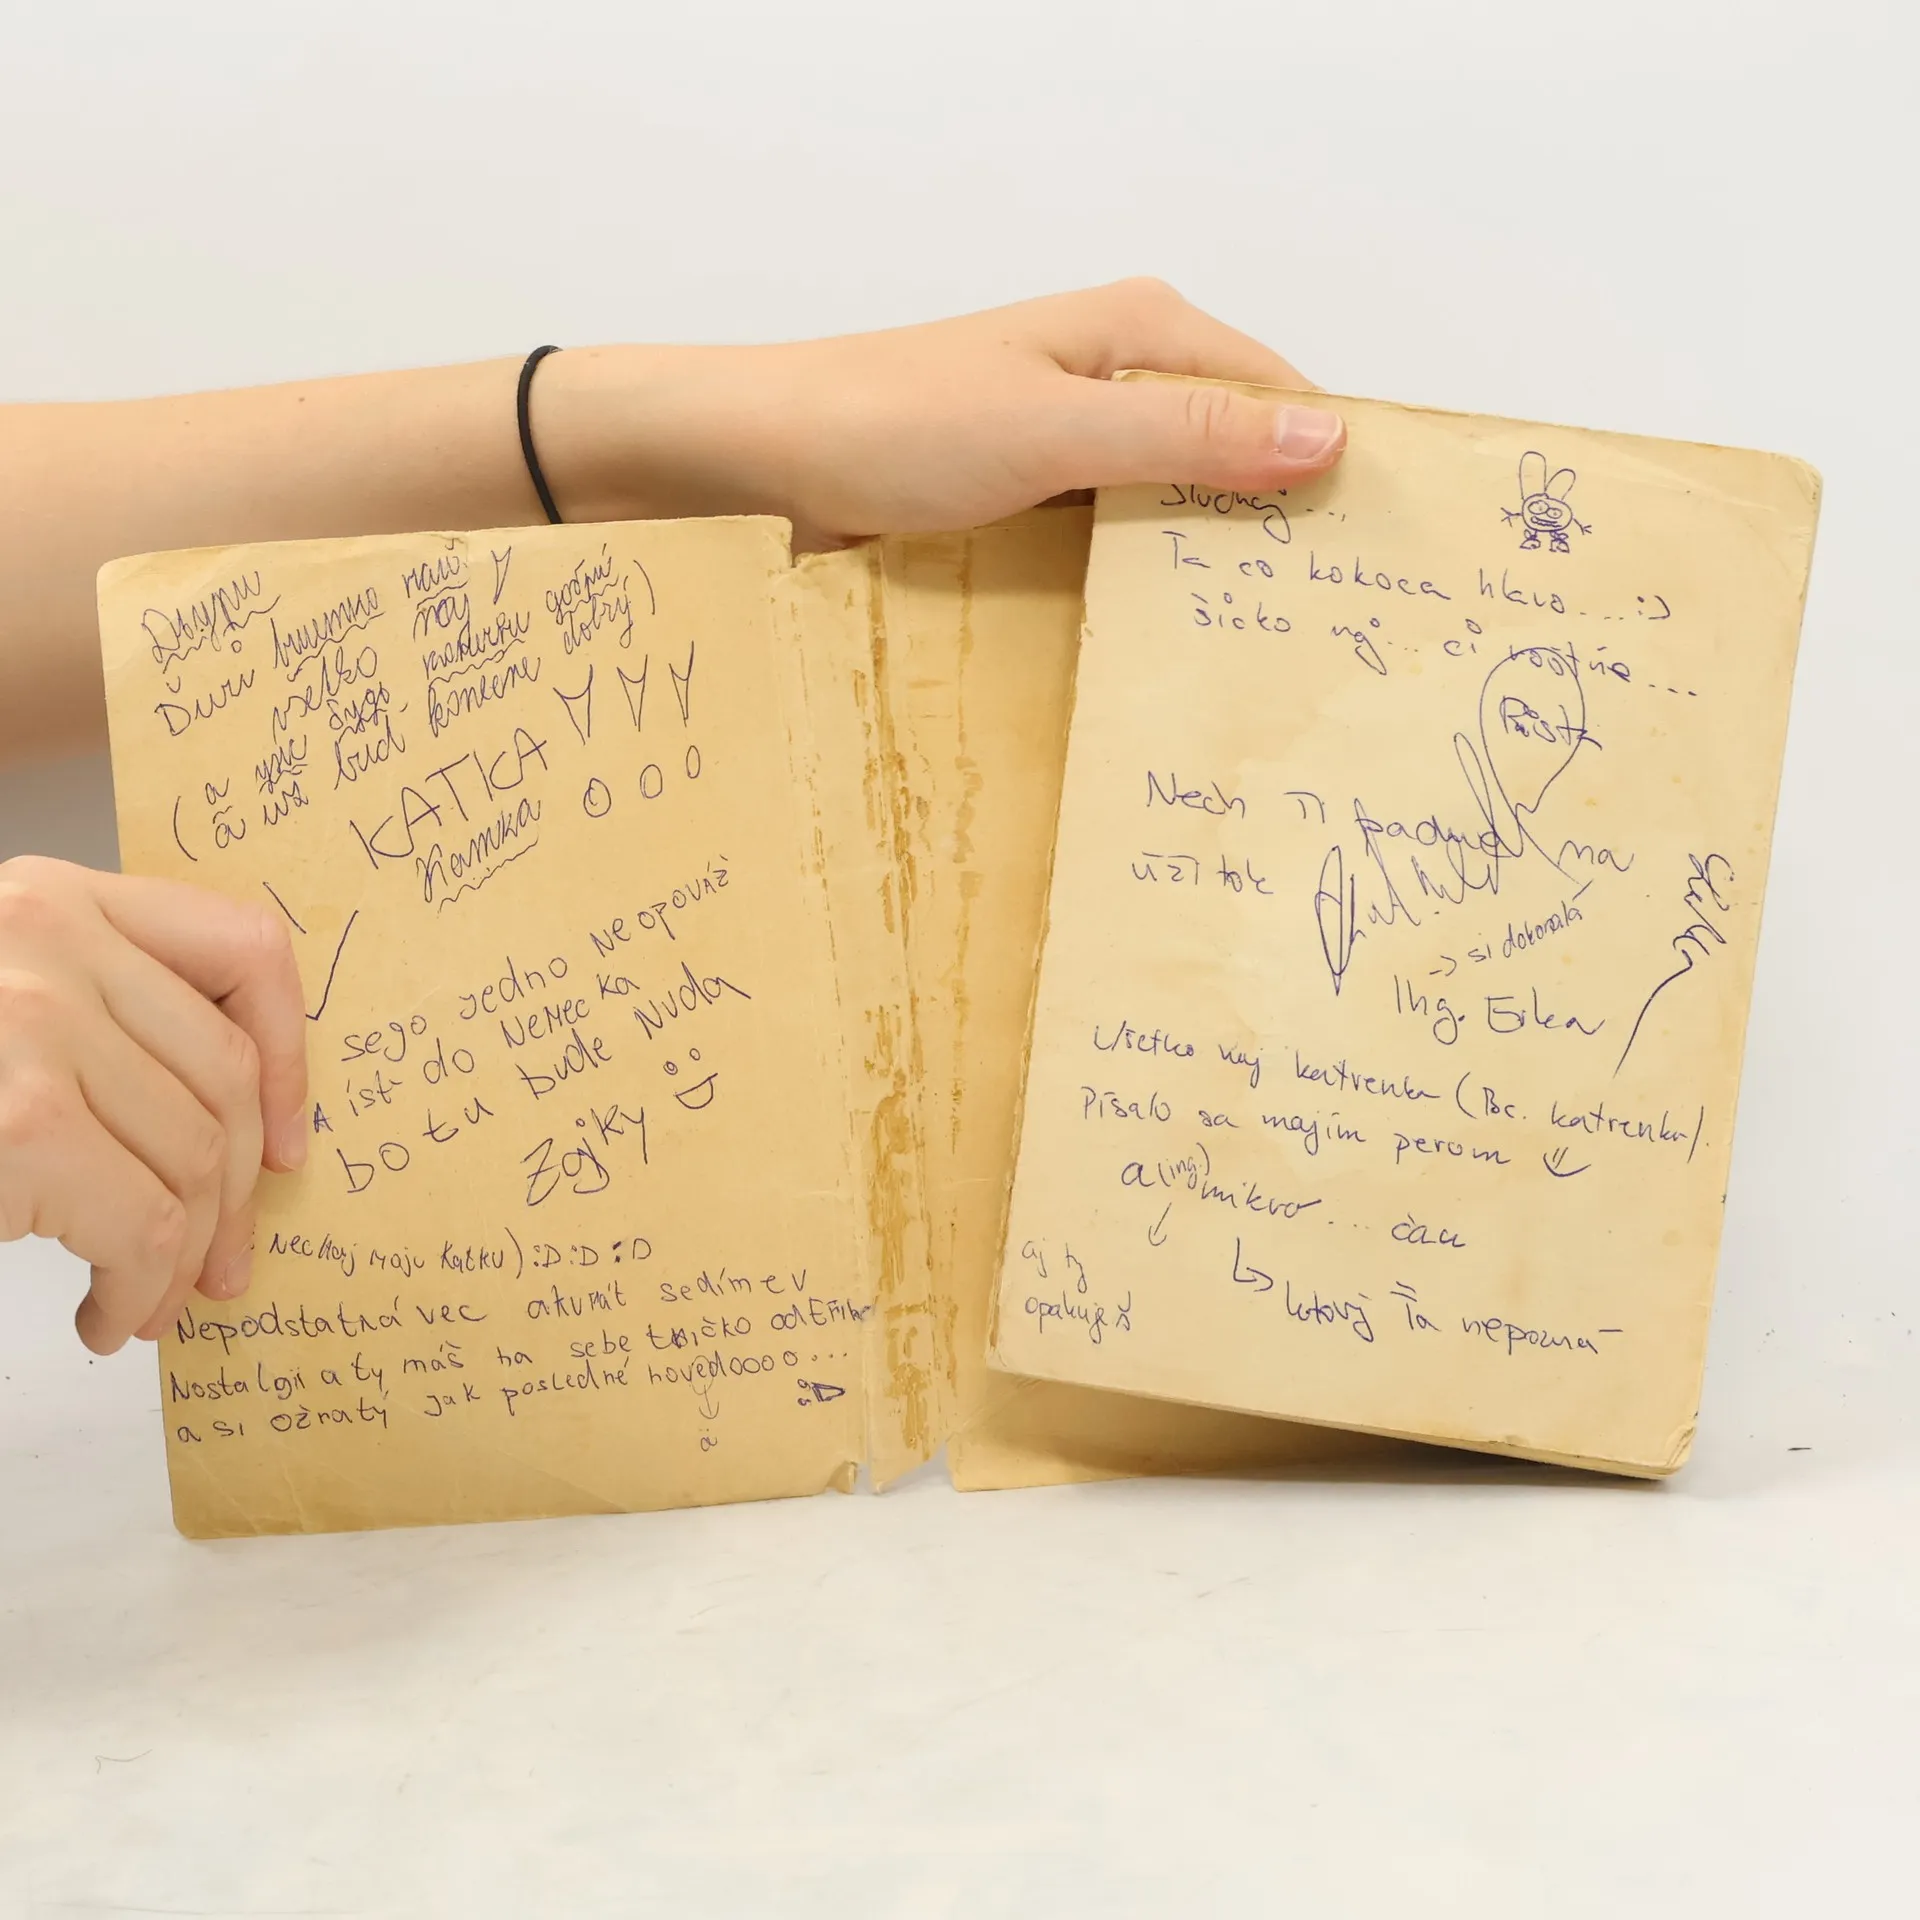 Ďuri
všetko naj
(a
a už buď konečne dobrý)
KATKA !!!
sego jedno NE opováž
A ísť do NEMECKA
bo tu bude NUDA
Zojky
Nechaj moju Katku) :D :D :D
Nepodstatná vec akurát sedíme v
Nostalgii a ty máš na sebe tričko od
a si ožratý jak posledné hovedoooo...
a
:D
Sluchaj...
Ta co kokoca hlavo... :)
šicko naj... ci
Nech Ti padne na
úžitok
→ si dokonalá
Ing. Erka
Všetko naj katrenka (Bc. katrenka).
Písalo sa mojím perom
a (ing.) mikro... čau
aj ty
opakuješ
ktorý Ťa nepozná